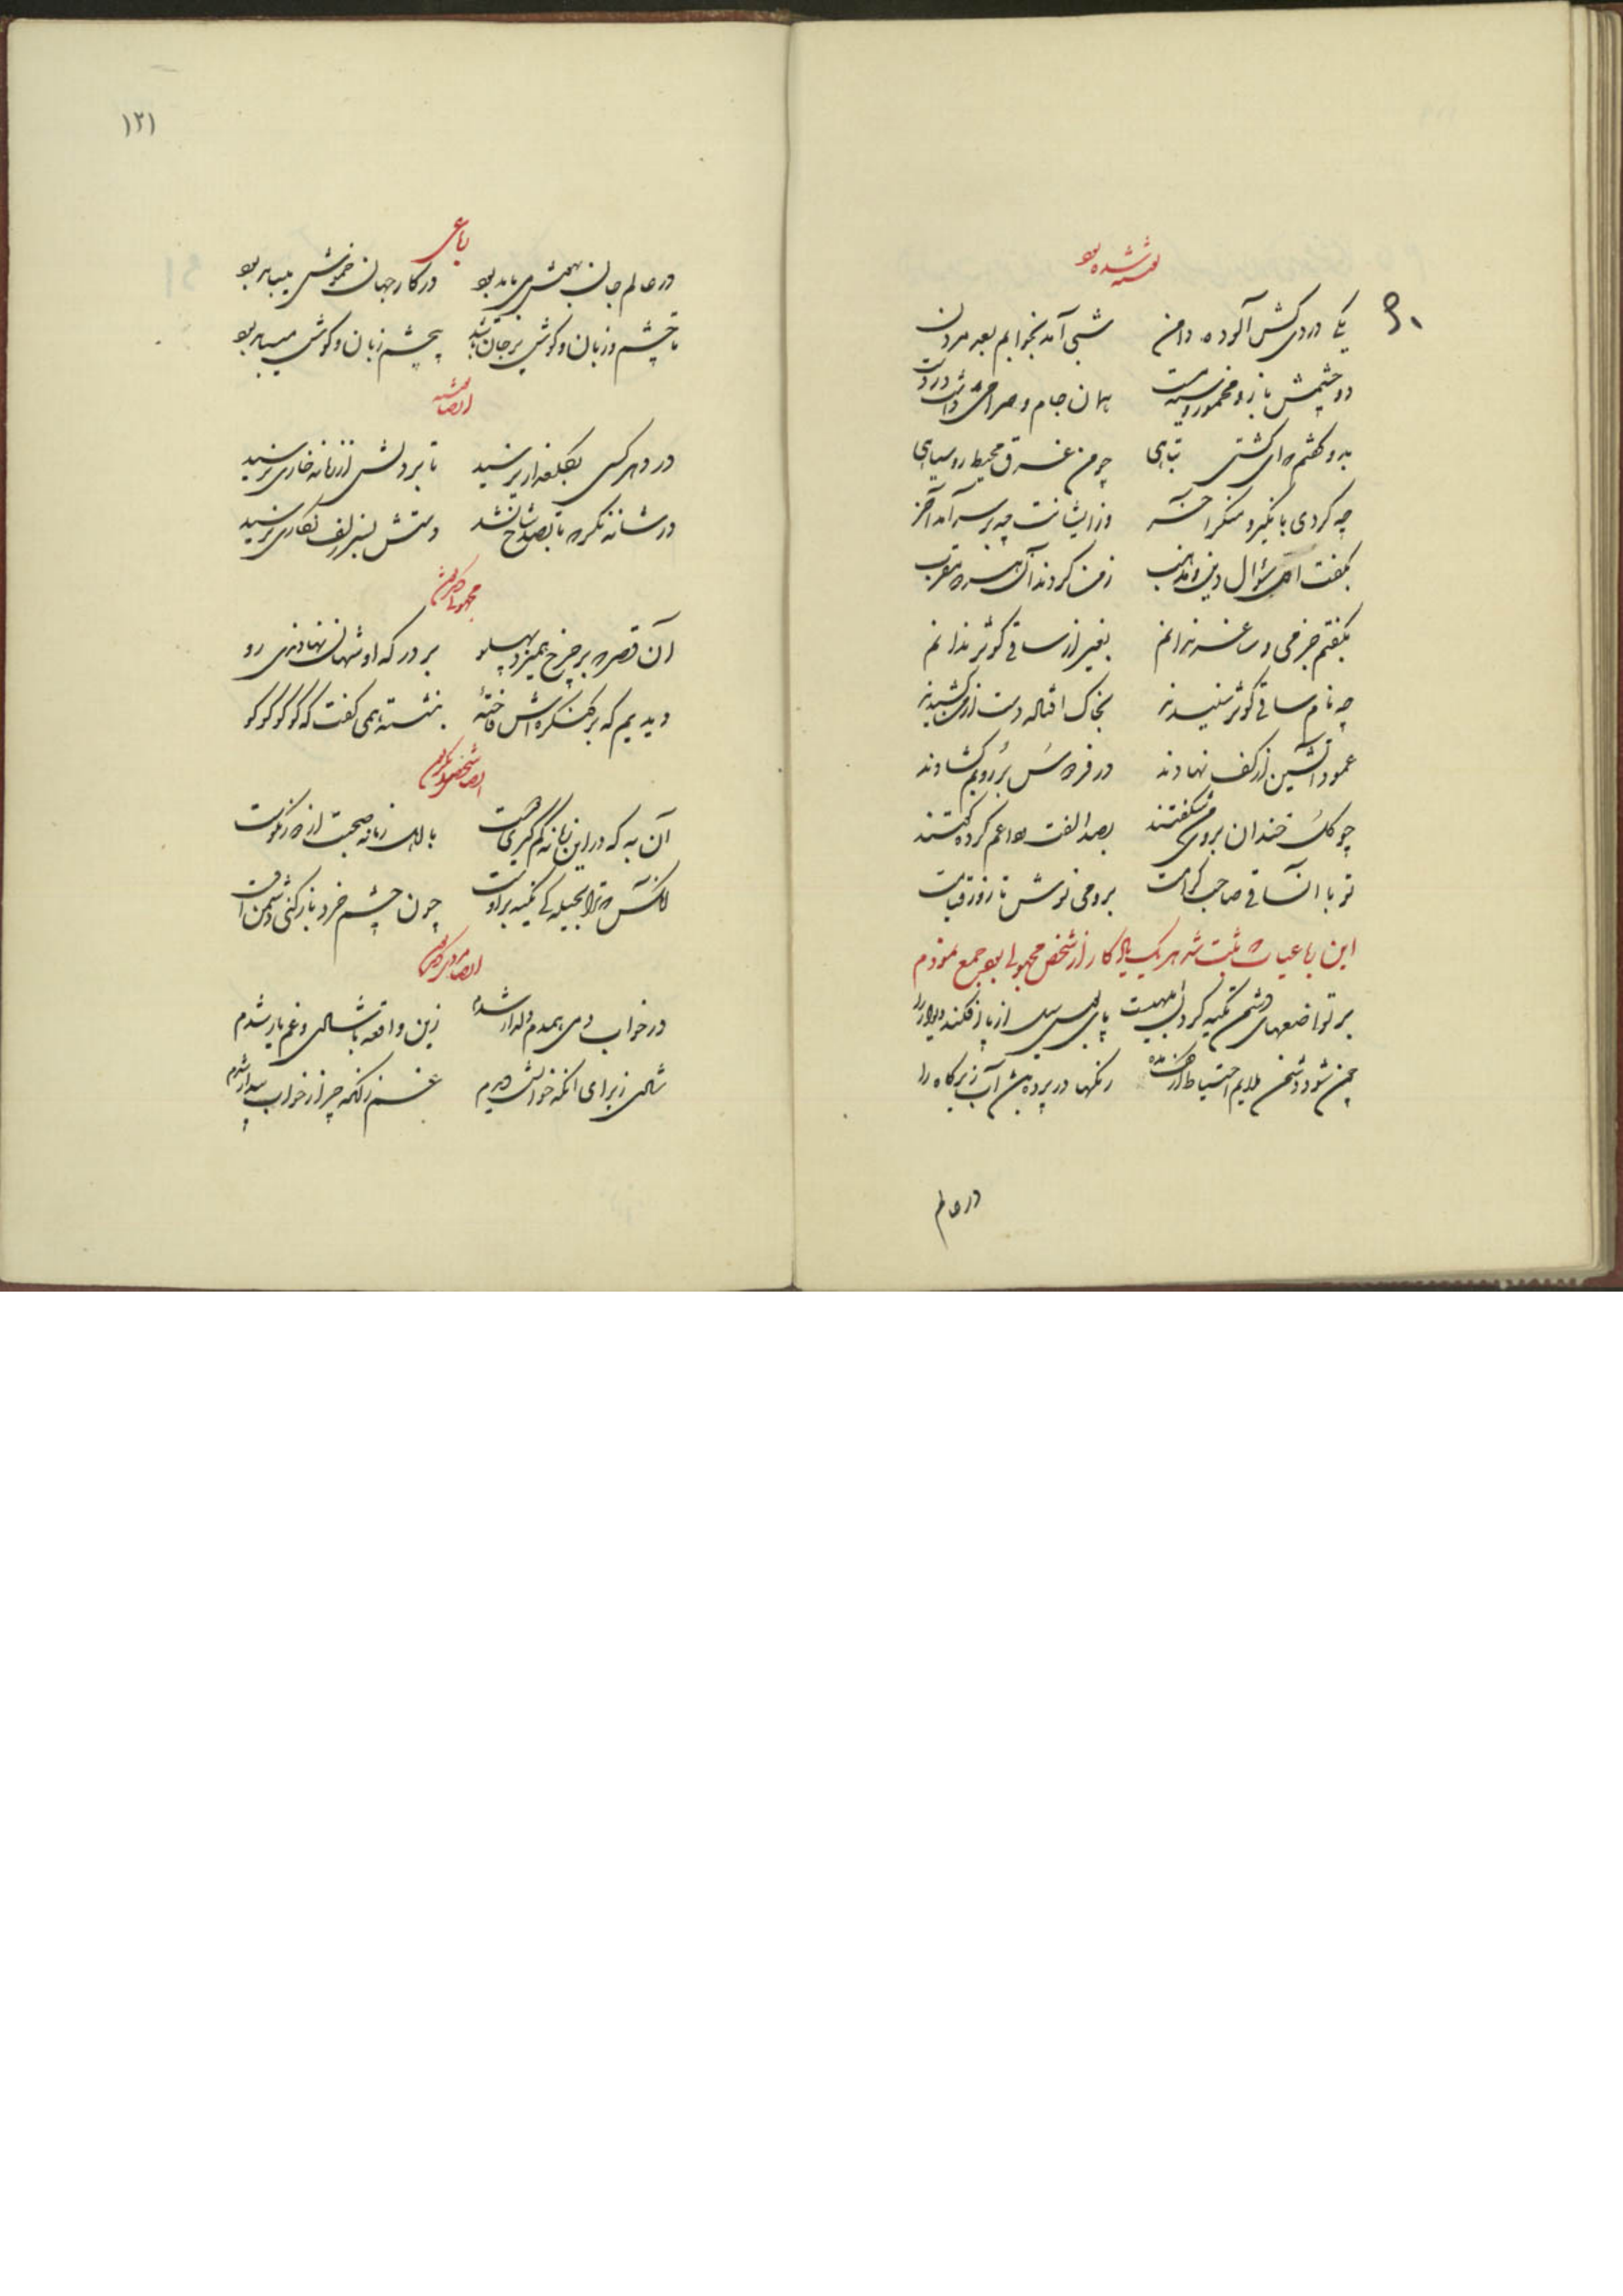 نوشته شده بود
یکی دردی کش آلوده دامن شبی آمد بخوابم بعد مردن
دو چشمش باز و مخمور و سیه مست همان جام و صراحی داشت در دست
بدو گفتم که ای کشتی تباهی چو من غرق محیط روسیاهی
چه کردی با نکیر و منکر آخر وز ایشانت چه بر سر آمد آخر
بگفت اول سؤال دین و مذهب ز من کردند آن هر دو مقرب
بگفتم جز می و ساغر ندانم بغیر از ساقی کوثر ندانم
چه نام ساقی کوثر شنیدند بخاک افتاده دست از من کشیدند
عمود آتشین از کف نهادند در فردوس بر رویم گشادند
چو گل خندان بروی من شکفتند بصد الفت وداعم کرده گفتند
تو با آن ساقی صاحب کرامت برو می نوش تا روز قیامت
این رباعیات که ثبت شد هر یک یادگار از شخص مجهولی بود جمع نمودم
بر تواضعهای دشمن تکیه کردن ابلهیست پای بوس سیل از پا افکند دیوار را
چون شود دشمن ملایم احتیاط از کف مده مکرها در پرده باشد آب زیر کاه را
در عالم
۱۲۱
رباعی
در عالم جان بهوش می باید بود در کار جهان خموش میباید بود
تا چشم و زبان و گوش بر جا باشد بی چشم و زبان و گوش میباید بود
ایضا
در دهر کسی بگلعذاری نرسید تا بر دلش از زمانه خاری نرسید
در شانه نگر که تا بصد شاخ نشد دستش بسر زلف نگاری نرسید
آن قصر که بر چرخ همیزد پهلو بر درگه او شهان نهادندی رو
دیدیم که بر کنگره اش فاخته بنشسته همی گفت که کو کو کو کو
آن به که در این زمانه کم گیری دوست با اهل زمانه صحبت از دور نکوست
آنکس که ترا بجملگی تکیه بر اوست چون چشم خرد باز کنی دشمنت اوست
در خواب دمی همدم دلدار شدم زین واقعه با شادی و غم یار شدم
شادی ز برای آنکه خوابش دیدم غم زانکه چرا ز خواب بیدار شدم